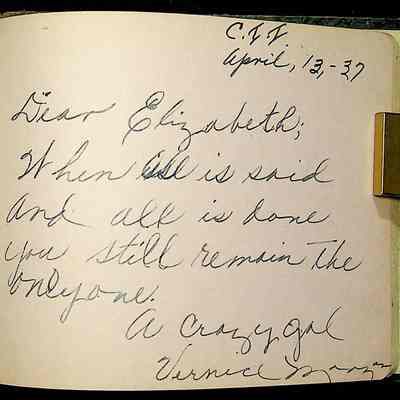 April, 13, -37
Dear Elizabeth;
When all is said
and all is done
you still remain the
only one.
A crazy gal
Vernice